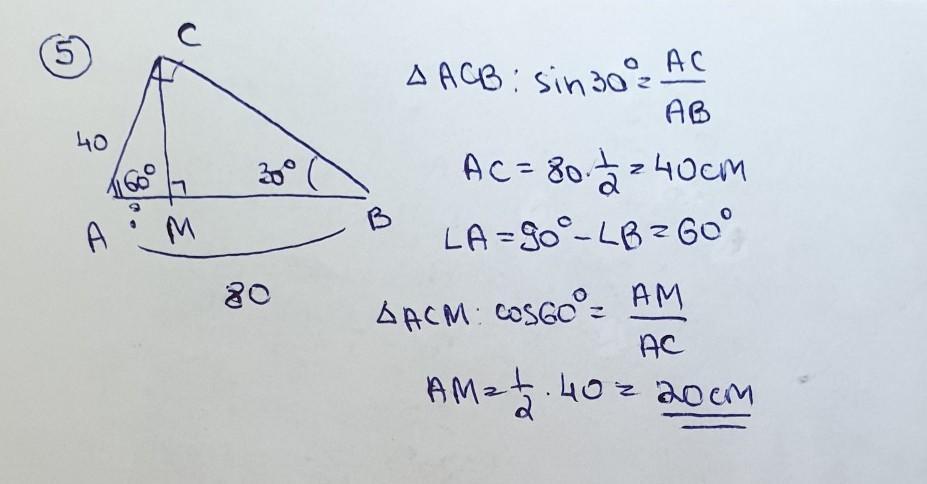 5
C
40
60°
30°
A
M
B
80
△ACB: sin30°= AC/AB
AC = 80·1/2 = 40cm
∠A = 90° - ∠B = 60°
△ACM: cos60° = AM/AC
AM = 1/2 · 40 = 20cm